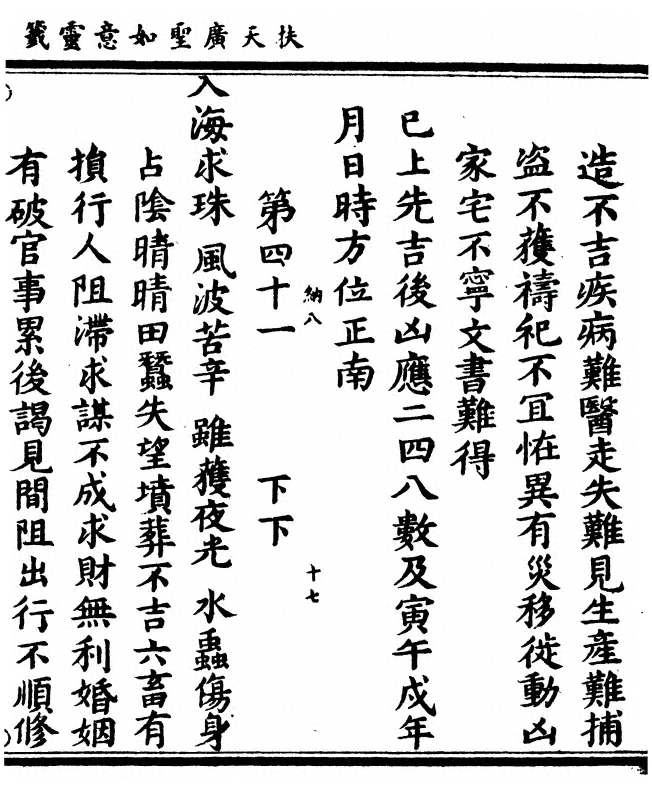 扶天廣聖如意靈籤
造不吉疾病難醫走失難見生產難捕
盗不獲禱祀不冝恠異有災移徙動凶
家宅不寧文書難得
已上先吉後凶應二四八數及寅午戌年
月日時方位正南
納八 十七
第四十一 下下
入海求珠 風波苦辛 雖獲夜光 水蟲傷身
占陰晴晴田蠶失望墳葬不吉六畜有
損行人阻滯求謀不成求財無利婚姻
有破官事累後謁見間阻出行不順修